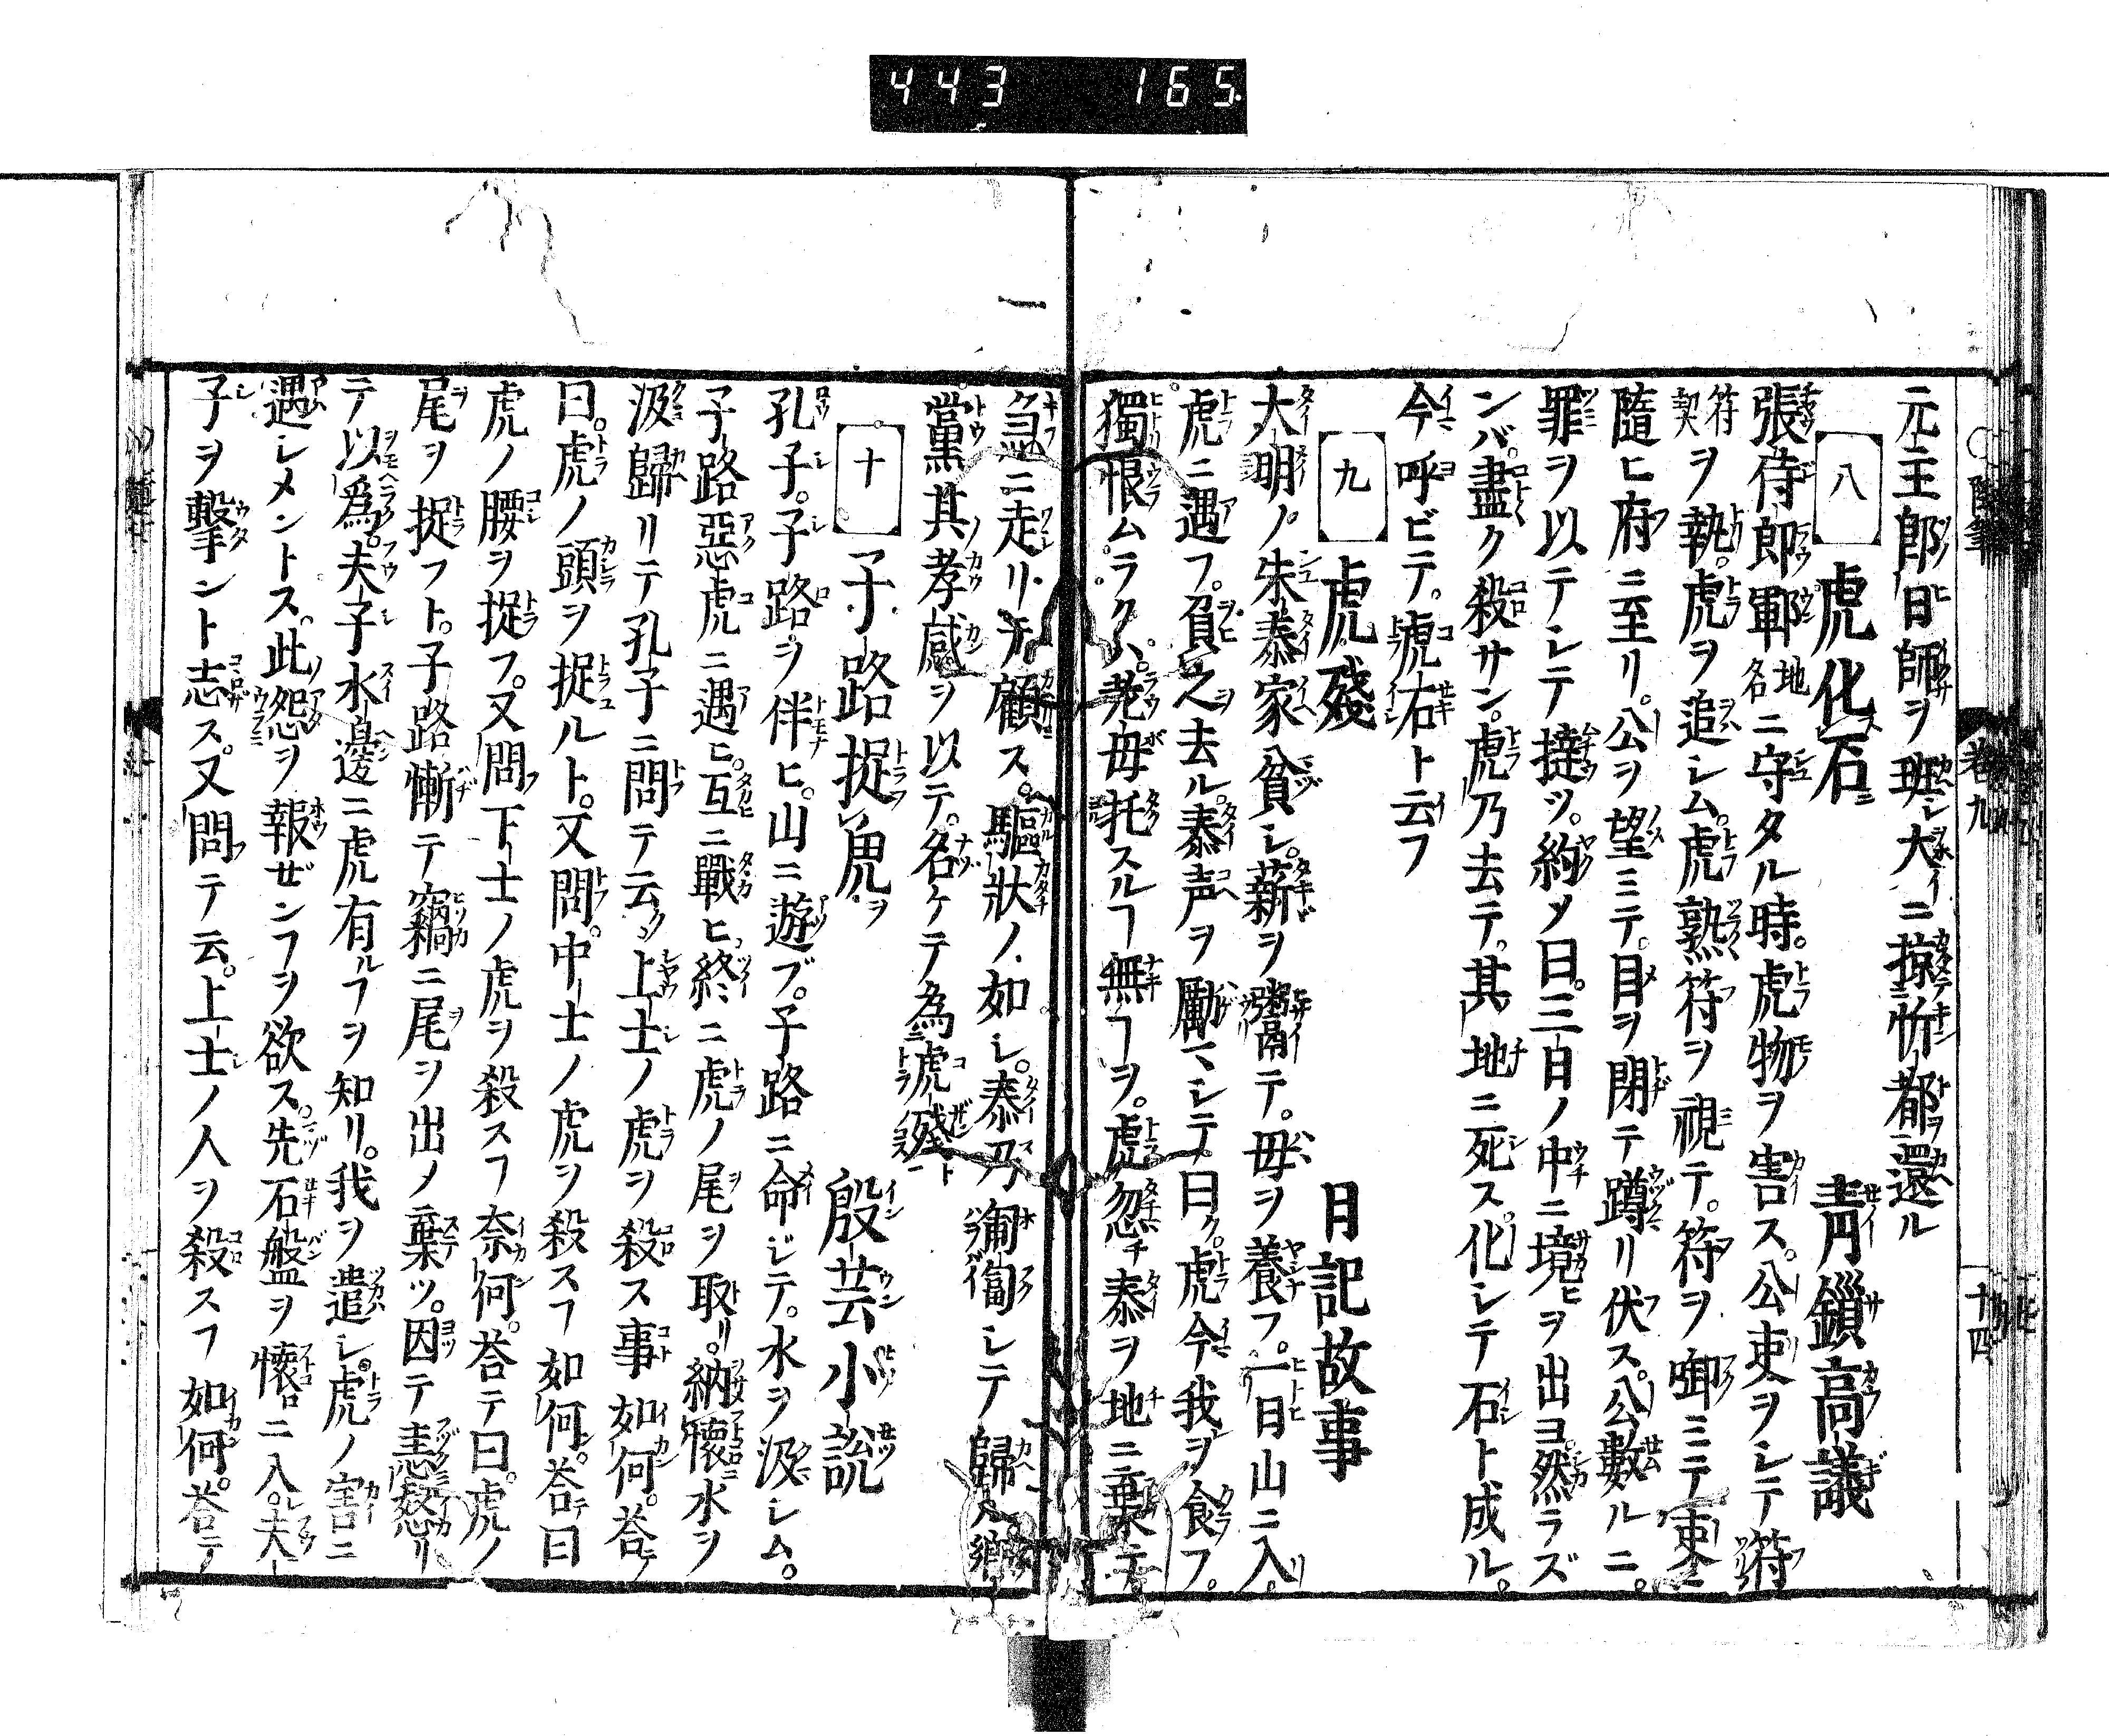 443 165
元主郎日師ヲ班シ大イニ掠忻都ヲ還ル
八 虎化石 青鎻高議
張侍郎鄆地名ニ守タル時。虎物ヲ害ス。公吏ヲシテ符
符契ヲ執。虎ヲ追シム。虎熟符ヲ視テ。符ヲ啣ミテ吏ニ
隨ヒ府ニ至リ。公ヲ望ミテ。目ヲ閉テ蹲リ伏ス。公數ルニ。
罪ヲ以テシテ撻ツ。約メ曰。三日ノ中ニ境ヲ出ヨ然ラズ
ンバ。盡ク殺サン。虎乃去テ。其地ニ死ス。化シテ石ト成ル。
今呼ビテ。虎右ト云フ
九 虎殘 日記故事
大明ノ朱泰家貧シ。薪ヲ鬻テ。母ヲ養フ。一日山ニ入。
虎ニ遇フ。負之去ル。泰声ヲ勵マシテ曰ク。虎今我ヲ食フ。
獨恨ムラクハ。老母托スルヿ無ヿヲ。虎忽チ泰ヲ地ニ棄テ
急ニ走リテ顧ス。驅狀ノ如シ。泰乃匍匐シテ歸ル鄉
黨其孝感ヲ以テ。名ケテ為虎殘ト
十 子路捉虎ヲ 殷芸小説
孔子。子路ヲ伴ヒ。山ニ遊ブ。子路ニ命ジテ。水ヲ汲シム。
子路惡虎ニ遇ヒ。互ニ戰ヒ。終ニ虎ノ尾ヲ取リ。納懷水ヲ
汲歸リテ孔子ニ問テ云ク。上士ノ虎ヲ殺ス事如何。荅テ
曰。虎ノ頭ヲ捉ルト。又問。中士ノ虎ヲ殺スヿ如何。荅曰
虎ノ腰ヲ捉フ。又問下士ノ虎ヲ殺スヿ奈何。荅テ曰。虎ノ
尾ヲ捉フト。子路慚テ竊ニ尾ヲ出メ棄ツ。因テ恚怒リ
テ以爲。夫子水邊ニ虎有ルヿヲ知リ。我ヲ遣シ。虎ノ害ニ
遇シメントス。此怨ヲ報ゼンヿヲ欲ス。先石盤ヲ懷ニ入。夫
子ヲ擊ント志ス。又問テ云。上士ノ人ヲ殺スヿ如何。荅テ
卷九
十四